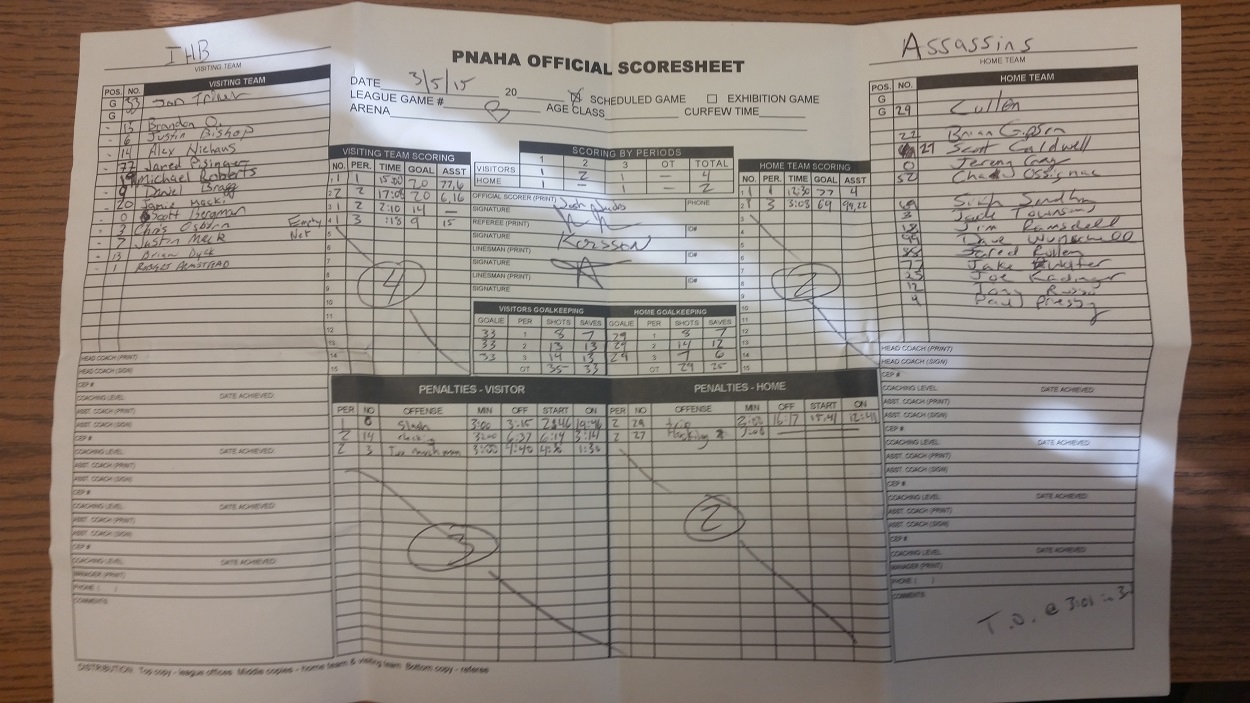 IHB
VISITING TEAM
PNAHA OFFICIAL SCORESHEET
Assassins
HOME TEAM
DATE 3/5/15 20
SCHEDULED GAME EXHIBITION GAME
LEAGUE GAME # AGE CLASS CURFEW TIME
ARENA B
VISITING TEAM
POS. NO.
G 33
G
15 Brandon O.
6 Justin Bishop
14 Alex Niehaus
77 Jared
19 Michael Roberts
9 Daniel Bragg
20 Jamie Macki
0 Scott Bergman
3 Chris Osborn
7 Justin Meek
13 Brian Dyck
1
HEAD COACH (PRINT)
HEAD COACH (SIGN)
CEP #
COACHING LEVEL DATE ACHIEVED
ASST. COACH (PRINT)
ASST. COACH (SIGN)
CEP #
COACHING LEVEL DATE ACHIEVED
ASST. COACH (PRINT)
ASST. COACH (SIGN)
CEP #
COACHING LEVEL DATE ACHIEVED
ASST. COACH (PRINT)
ASST. COACH (SIGN)
CEP #
COACHING LEVEL DATE ACHIEVED
MANAGER (PRINT)
PHONE ( )
COMMENTS
VISITING TEAM SCORING
NO. PER. TIME GOAL ASST
1 1 15:00 20 77,6
2 2 17:08 20 6,16
3 2 2:10 14 —
Empty Net
4 3 1:13 9 15
5
6
7
8
9
10
11
12
13
14
15
4
SCORING BY PERIODS
1 2 3 OT TOTAL
VISITORS 1 2 1 — 4
HOME 1 — 1 — 2
OFFICIAL SCORER (PRINT) Josh
SIGNATURE PHONE
REFEREE (PRINT)
SIGNATURE ID#
LINESMAN (PRINT)
SIGNATURE ID#
LINESMAN (PRINT)
SIGNATURE ID#
VISITORS GOALKEEPING
GOALIE PER SHOTS SAVES
33 1 8 7
33 2 13 13
33 3 14 13
OT 35 33
HOME GOALKEEPING
GOALIE PER SHOTS SAVES
29 1 8 7
29 2 14 12
29 3 7 6
OT 29 25
HOME TEAM SCORING
NO. PER. TIME GOAL ASST
1 1 12:30 77 4
2 3 3:03 69 99,22
3
4
5
6
7
8
9
10
11
12
13
14
15
2
PENALTIES - VISITOR
PER NO OFFENSE MIN OFF START ON
1 6 Slash 3:00 3:15
2 14 3:00 6:37 6:14 3:14
2 3 3:00 4:40 4:30 1:30
3
PENALTIES - HOME
PER NO OFFENSE MIN OFF START ON
2 29 trip
2 27 Hooking
2
HOME TEAM
POS. NO.
G
G 29 Cullen
22 Brian Gipson
27 Scott Caldwell
0 Jeremy Gray
52 Chad Ossignac
69
3 Jade Townsing
18 Jim Ramsdell
99 Dave
88 Jared Pullen
77 Jake
25 Joe
12 Tony Russo
9 Paul Pressy
HEAD COACH (PRINT)
HEAD COACH (SIGN)
CEP #
COACHING LEVEL DATE ACHIEVED
ASST. COACH (PRINT)
ASST. COACH (SIGN)
CEP #
COACHING LEVEL DATE ACHIEVED
ASST. COACH (PRINT)
ASST. COACH (SIGN)
CEP #
COACHING LEVEL DATE ACHIEVED
ASST. COACH (PRINT)
ASST. COACH (SIGN)
CEP #
COACHING LEVEL DATE ACHIEVED
MANAGER (PRINT)
PHONE ( )
COMMENTS
T.O. @ 3:01 in 3
DISTRIBUTION: Top copy - league offices Middle copies - home team & visiting team Bottom copy - referee